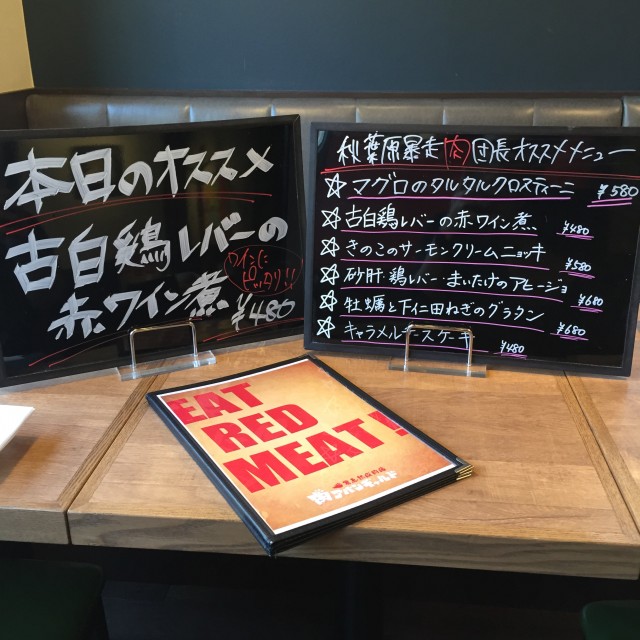 本日のオススメ
古白鶏レバーの
赤ワイン煮
ワインに
ピッタリ!!
¥480
秋葉原暴走肉団長オススメメニュー
☆マグロのタルタルクロスティーニ ¥580
☆古白鶏レバーの赤ワイン煮 ¥480
☆きのこのサーモンクリームニョッキ ¥580
☆砂肝・鶏レバー・まいたけのアヒージョ ¥680
☆牡蠣と下仁田ねぎのグラタン ¥680
☆キャラメルチーズケーキ ¥480
EAT
RED
MEAT!